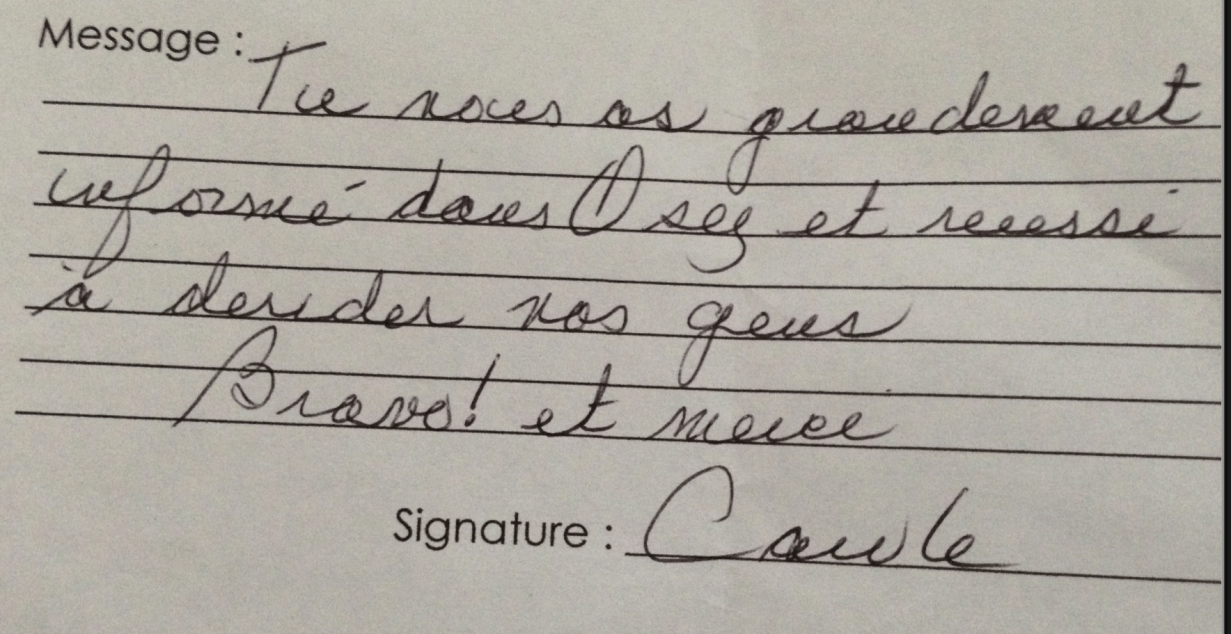 Message : Tu nous as grandement
informé dans Osez et réussi
à derider nos gens
Bravo! et merci
Signature : Carole